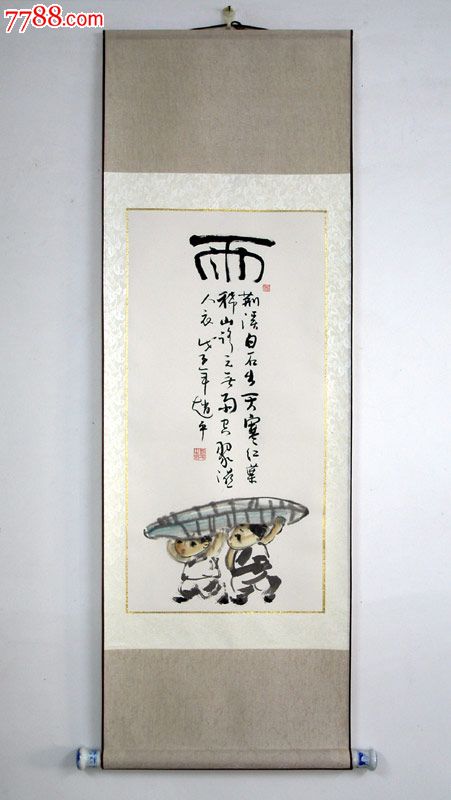 7788.com
雨
荆溪白石出天寒红葉
稀山路元无雨空翠溼
人衣 戊子年 趙平